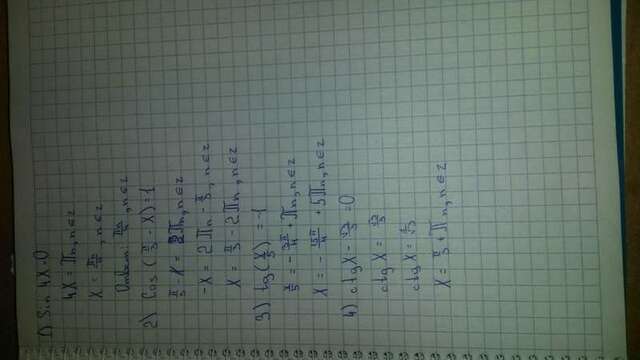 1) Sin 4x=0
4x = πn, n∈z
x = πn/4, n∈z
Ответ: πn/4, n∈z
2) Cos (π/3 - x) = 1
π/3 - x = 2πn, n∈z
-x = 2πn - π/3, n∈z
x = π/3 - 2πn, n∈z
3) tg (x/5) = -1
x/5 = - π/4 + πn, n∈z
x = - 5π/4 + 5πn, n∈z
4) ctgx - √3/3 = 0
ctgx = √3/3
ctgx = 1/√3
x = π/3 + πn, n∈z